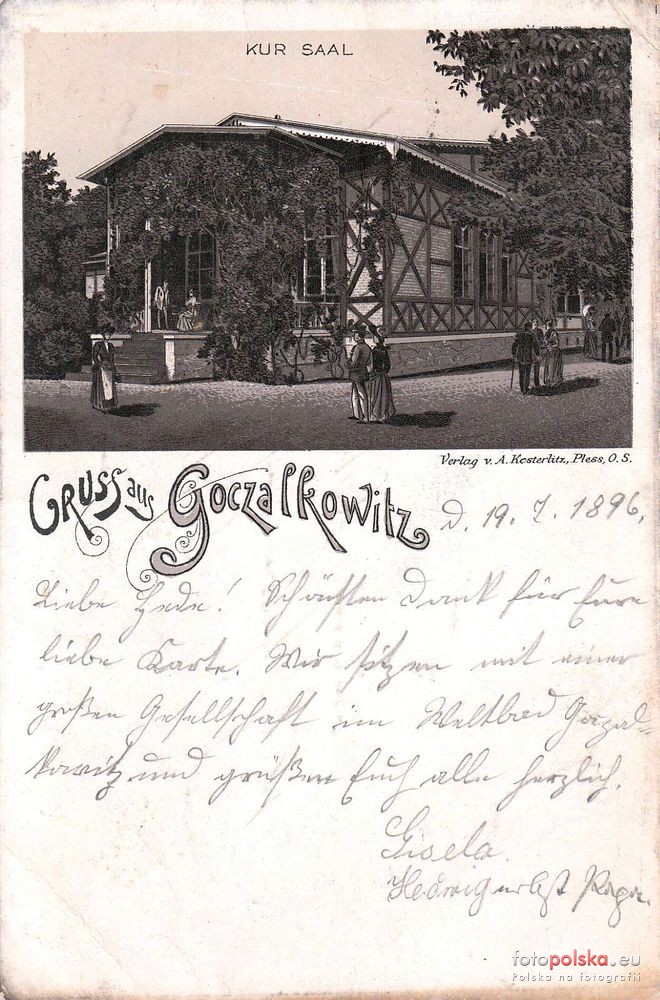 KUR SAAL
Verlag v. A. Kosterlitz, Pless, O. S.
Gruss aus Goczalkowitz
d. 19. 7. 1896.
Liebe Hede! Schönsten Dank für Eure
liebe Karte. Wir sitzen mit einer
großen Gesellschaft im Weltbad Goczal-
kowitz und grüßen Euch alle herzlich.
Gisela.
Hedwig nebst Papa.
fotopolska.eu
Polska na fotografii